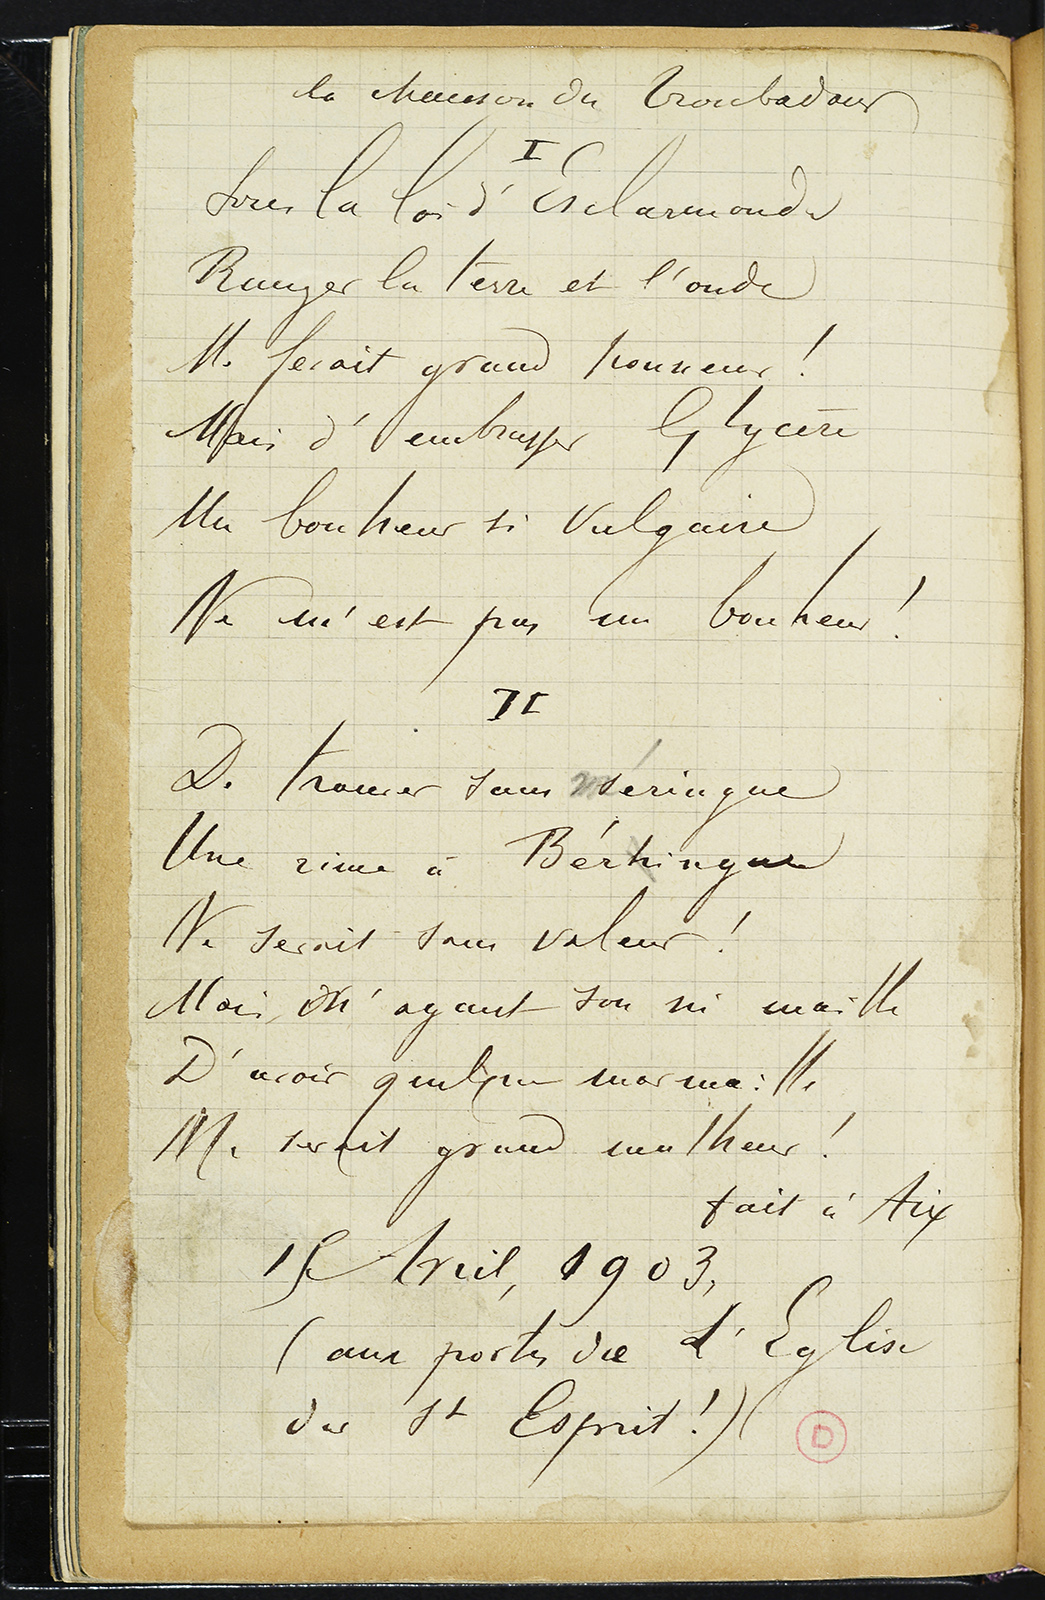 la chanson du Troubadour
I
Sous la loi d'Esclarmonde
Ranger la terre et l'onde
Me serait grand honneur !
Mais d'embrasser Glycère
Un bonheur si vulgaire
Ne m'est pas un bonheur !
II
De trouver sans séringue
Une rime à
Ne serait sans valeur !
Mais n'ayant sou ni maille
D'avoir quelque marmaille
Me serait grand malheur !
fait à Aix
15 Avril, 1903,
(aux portes de L'Eglise
du St Esprit !)
D